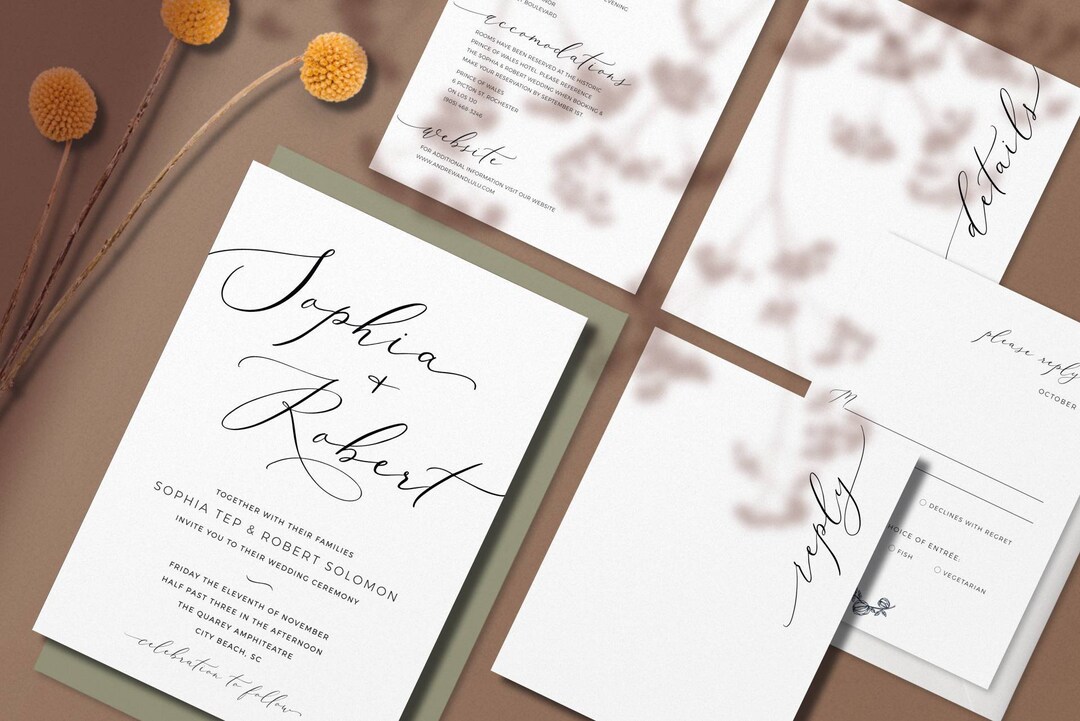 Sophia
+
Robert
TOGETHER WITH THEIR FAMILIES
SOPHIA TEP & ROBERT SOLOMON
INVITE YOU TO THEIR WEDDING CEREMONY
FRIDAY THE ELEVENTH OF NOVEMBER
HALF PAST THREE IN THE AFTERNOON
THE QUAREY AMPHITEATRE
CITY BEACH, SC
celebration to follow
BOULEVARD
accomodations
ROOMS HAVE BEEN RESERVED AT THE HISTORIC
PRINCE OF WALES HOTEL. PLEASE REFERENCE
THE SOPHIA & ROBERT WEDDING WHEN BOOKING &
MAKE YOUR RESERVATION BY SEPTEMBER 1ST.
PRINCE OF WALES
6 PICTON ST, ROCHESTER
ON L0S 1J0
(905) 468-3246
website
FOR ADDITIONAL INFORMATION VISIT OUR WEBSITE
WWW.ANDREWANDLULU.COM
details
reply
please reply
OCTOBER
M
DECLINES WITH REGRET
CHOICE OF ENTRÉE:
FISH
VEGETARIAN